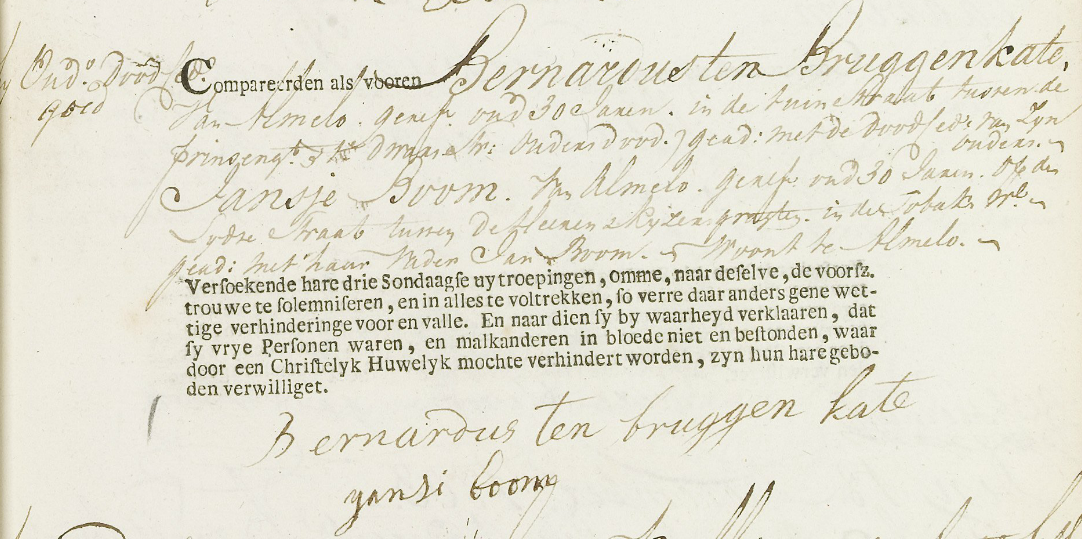 Oud.s Dood
Compareerden als vooren Bernardus ten Bruggenkate,
Van Almelo. geref. oud 30 Jaren. in de tuinstraat tussen de
prinsengt. dwars str: Ouders dood.) gead: met de Doodsed: van Zyn
Ouders.
Jansje Boom. Van Almelo. geref: oud 30 Jaren. Op de
straat tussen de in de Tobaks
gead: met haar Vader Jan Boom. Woont te Almelo.
Verſoekende hare drie Sondaagſe uytroepingen, omme, naar deſelve, de voorſz.
trouwe te ſolemniſeren, en in alles te voltrekken, ſo verre daar anders gene wet-
tige verhinderinge voor en valle. En naar dien ſy by waarheyd verklaaren, dat
ſy vrye Perſonen waren, en malkanderen in bloede niet en beſtonden, waar
door een Chriſtelyk Huwelyk mochte verhindert worden, zyn hun hare gebo-
den verwilliget.
Bernardus ten bruggen kate
yansi boom